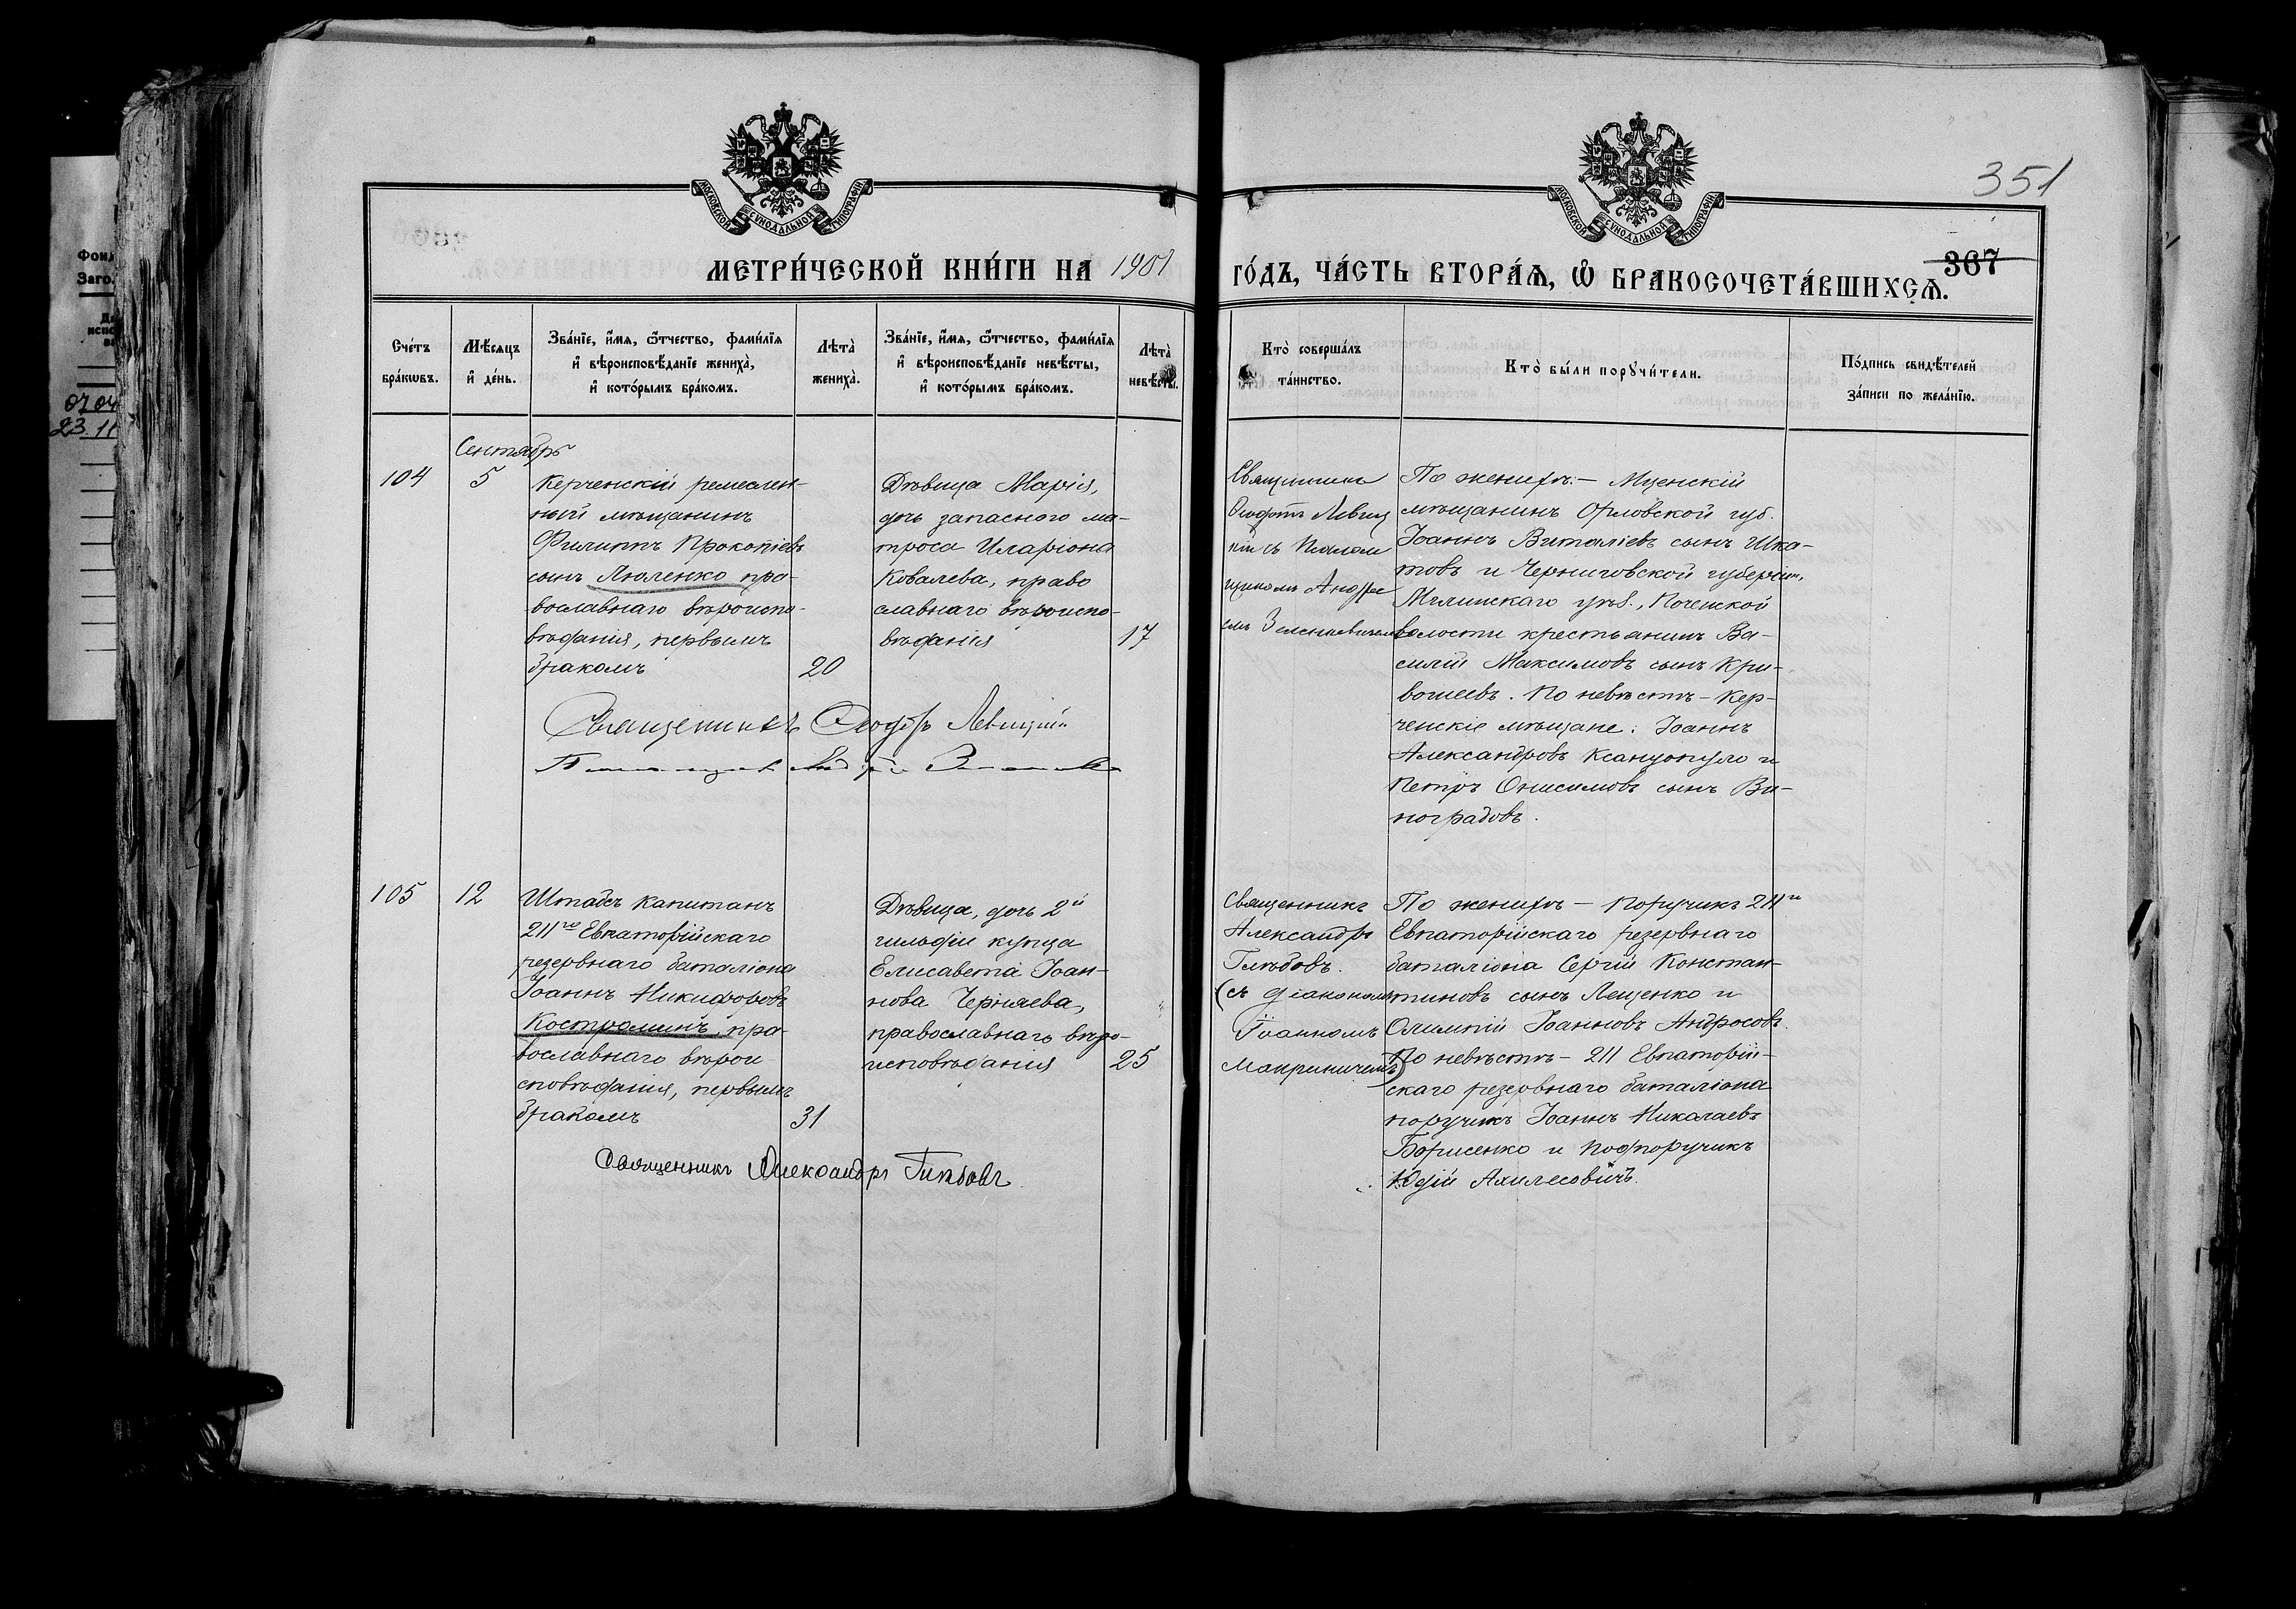 351
367
МОСКОВСКОЙ СѴНОДАЛЬНОЙ ТИПОГРАФІИ
МОСКОВСКОЙ СѴНОДАЛЬНОЙ ТИПОГРАФІИ
МЕТРИ́ЧЕСКОЙ КНИ́ГИ НА 1901
ГО́ДЪ, ЧА́СТЬ ВТОРА́Ѧ, Ѡ҆ БРАКОСОЧЕТА́ВШИХСѦ.
Сче́тъ
бра́кѡвъ.
Мѣ́сѧцъ
и҆ де́нь.
Зва́нїе, и҆́мѧ, ѻ҆́тчество, фами́лїѧ
и҆ вѣроисповѣ́данїе жениха̀,
и҆ кото́рымъ бра́комъ.
Лѣта̀
жениха̀.
Зва́нїе, и҆́мѧ, ѻ҆́тчество, фами́лїѧ
и҆ вѣроисповѣ́данїе невѣ́сты,
и҆ кото́рымъ бра́комъ.
Лѣта̀
невѣ́сты.
Кто̀ соверша́лъ
та́инство.
Кто̀ бы́ли порꙋчи́тели.
По́дпись свидѣ́телей
за́писи по жела́нїю.
Сентябрь
104
5
Керченскій ремеслен-
ный мѣщанинъ
Филиппъ Прокопіевъ
сынъ Люленко пра-
вославнаго вѣроиспо-
вѣданія, первымъ
бракомъ
20
Дѣвица Марія,
дочь запаснаго ма-
троса Иларіона
Ковалева, право
славнаго вѣроиспо-
вѣданія
17
Священникъ
Ѳеодотъ Левиц
кій съ Псалом
щикомъ Андре
емъ
По женихѣ: – Мценскій
мѣщанинъ Орловской губ.
Іоаннъ Виталіевъ сынъ Шка-
товъ и Черниговской губерніи,
Мглинскаго уѣзд., Почепской
волости крестьянинъ Ва-
силій Максимовъ сынъ Кри-
вошеевъ. По невѣстѣ – Кер-
ченскіе мѣщане: Іоаннъ
Александровъ Ксанцопуло и
Петръ Онисимовъ сынъ Ви-
ноградовъ.
Священникъ Левицкій
105
12
Штабсъ Капитанъ
211го Евпаторійскаго
резервнаго баталіона
Іоаннъ Никифоровъ
Костроминъ пра-
вославнаго вѣрои
сповѣданія, первымъ
бракомъ
31
Дѣвица, дочь 2й
гильдіи купца
Елисавета Іоан-
нова Черняева,
православнаго вѣро-
исповѣданія
25
Священникъ
Александръ
Глѣбовъ.
(съ діакономъ
Іоанномъ
Макриничемъ)
По женихѣ – Поручикъ 211го
Евпаторійскаго резервнаго
баталіона Сергій Констан-
тиновъ сынъ Лещенко и
Олимпій Іоанновъ Андросовъ.
По невѣстѣ – 211 Евпаторій-
скаго резервнаго баталіона
поручикъ Іоаннъ Николаевъ
Борисенко и Подпоручикъ
Ахилесовичъ.
Священникъ Александръ Глѣбовъ